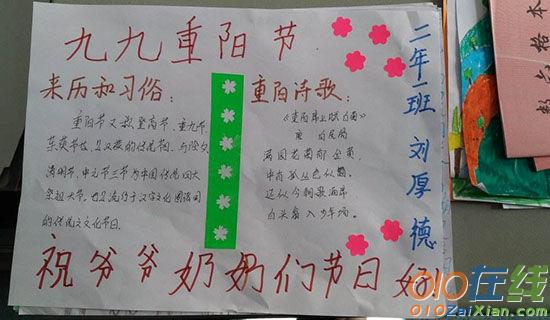 九九重阳节
来历和习俗：
重阳节又称登高节、重九节、
茱萸节等，是汉族的传统节日，与除夕、
清明节、中元节三节为中国传统四大
祭祖大节，也是流行于汉字文化圈诸国
的传统文化节日。
重阳诗歌：
唐
满园花菊郁金黄，
中有孤丛色似霜。
还似今朝歌酒席，
白头翁入少年场。
二年一班 刘厚德
祝爷爷奶奶们节日好
数学格本
010在线
010ZaiXian.com